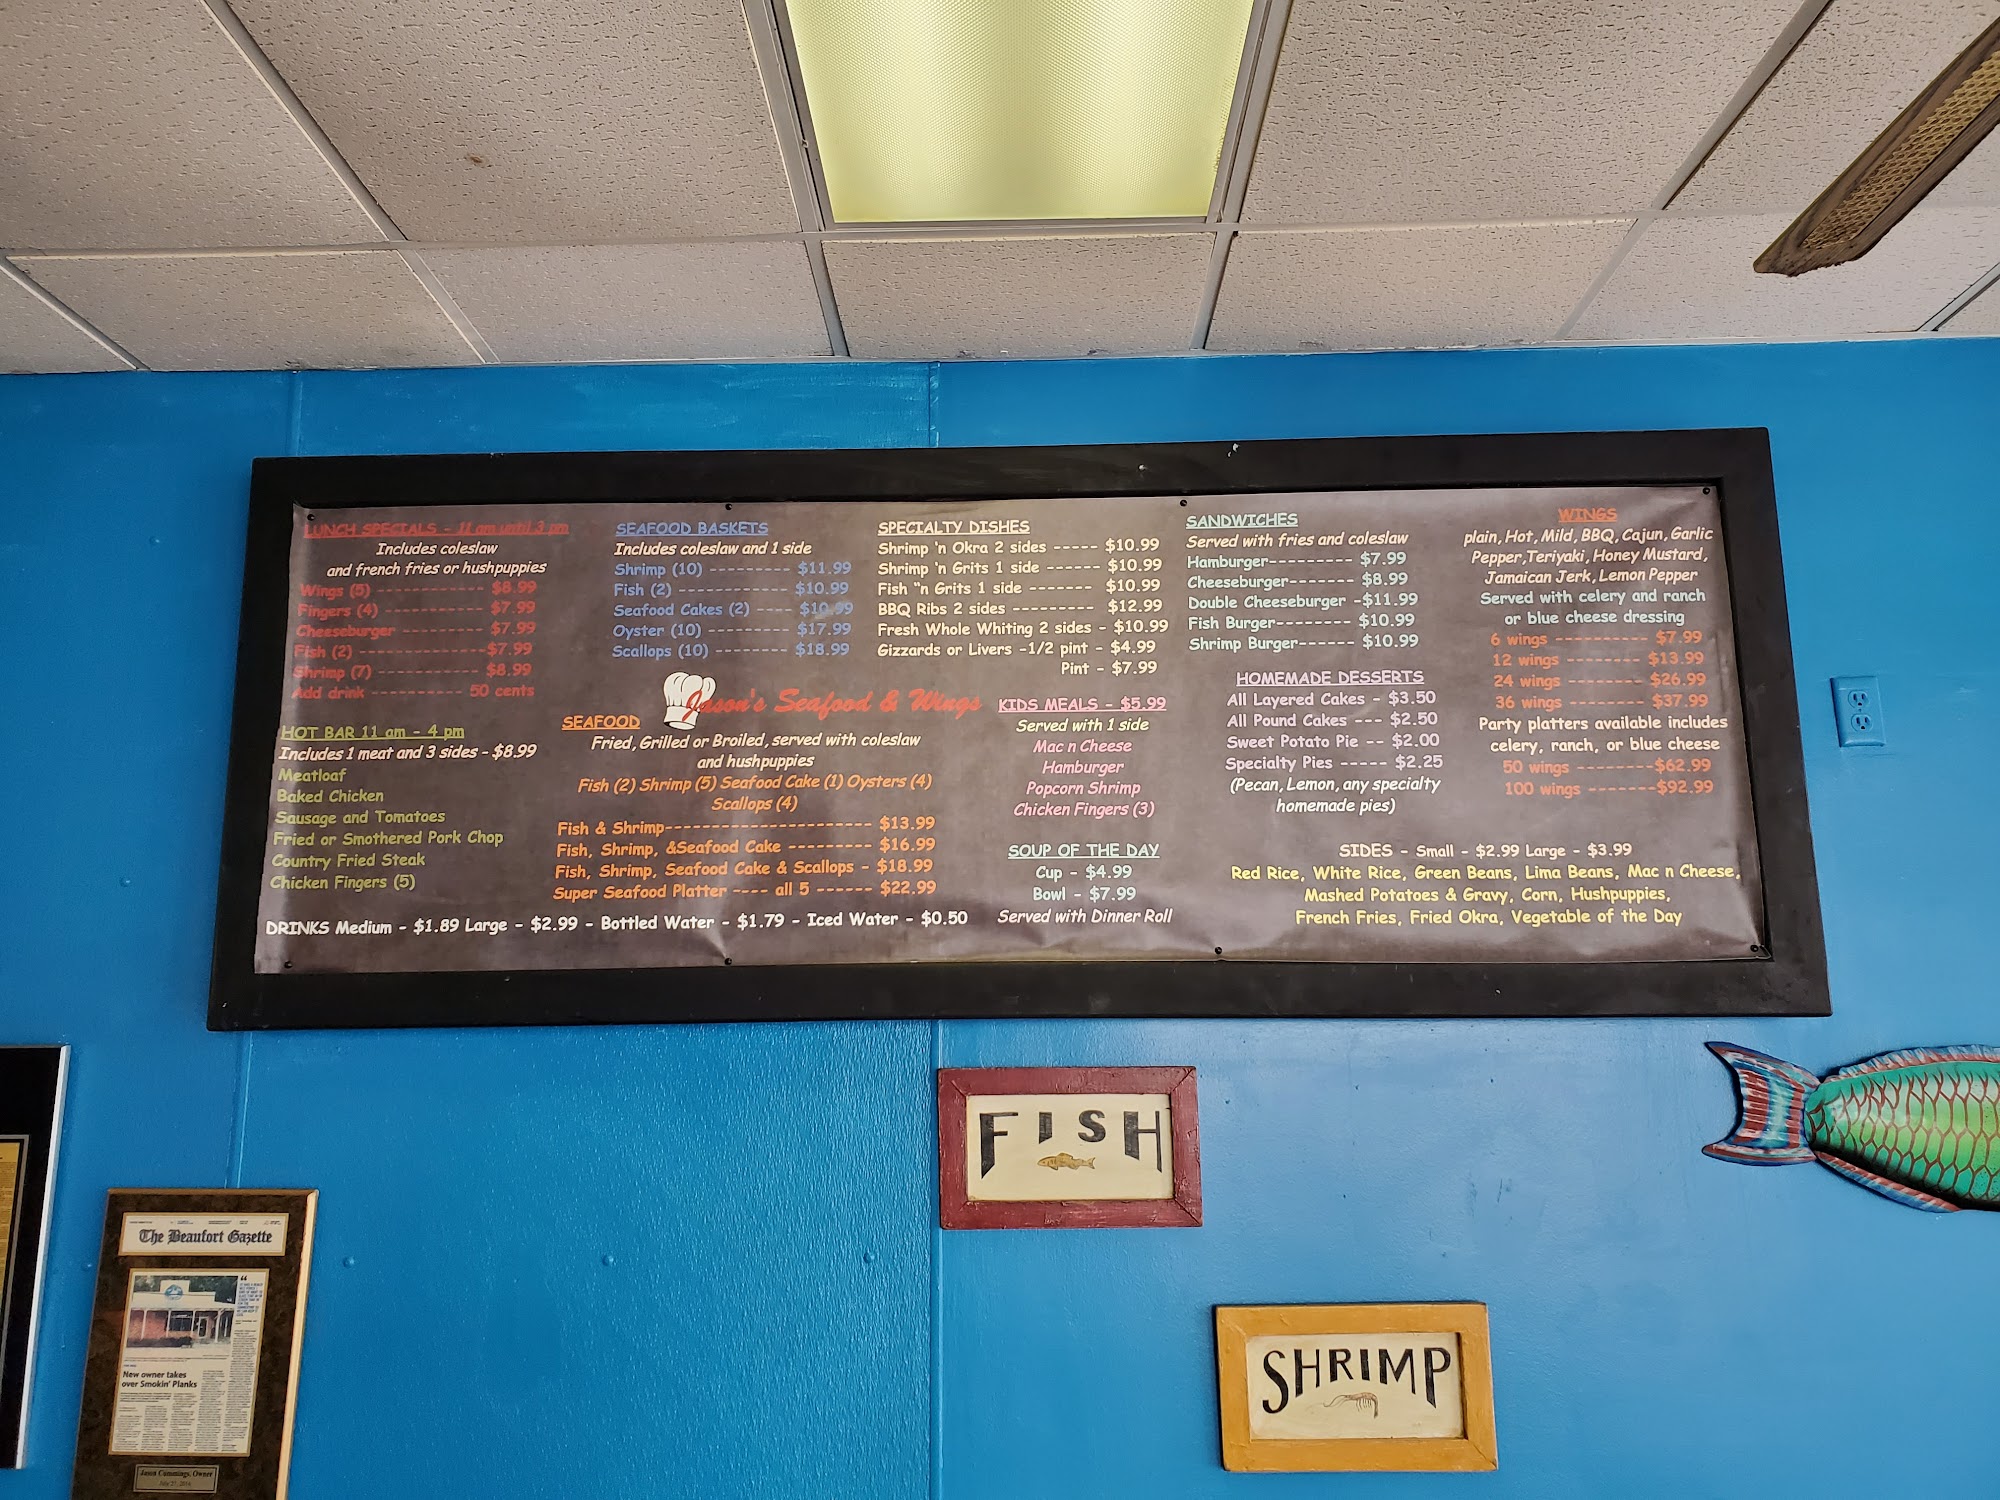 LUNCH SPECIALS - 11 am until 3 pm
Includes coleslaw
and french fries or hushpuppies
Wings (5) ------------- $8.99
Fingers (4) ------------ $7.99
Cheeseburger ---------- $7.99
Fish (2) ----------------$7.99
Shrimp (7) ------------ $8.99
Add drink ----------- 50 cents
HOT BAR 11 am - 4 pm
Includes 1 meat and 3 sides - $8.99
Meatloaf
Baked Chicken
Sausage and Tomatoes
Fried or Smothered Pork Chop
Country Fried Steak
Chicken Fingers (5)
SEAFOOD BASKETS
Includes coleslaw and 1 side
Shrimp (10) ---------- $11.99
Fish (2) ------------- $10.99
Seafood Cakes (2) ---- $10.99
Oyster (10) ---------- $17.99
Scallops (10) --------- $18.99
Jason's Seafood & Wings
SEAFOOD
Fried, Grilled or Broiled, served with coleslaw
and hushpuppies
Fish (2) Shrimp (5) Seafood Cake (1) Oysters (4)
Scallops (4)
Fish & Shrimp----------------------- $13.99
Fish, Shrimp, &Seafood Cake --------- $16.99
Fish, Shrimp, Seafood Cake & Scallops - $18.99
Super Seafood Platter ---- all 5 ------ $22.99
DRINKS Medium - $1.89 Large - $2.99 - Bottled Water - $1.79 - Iced Water - $0.50
SPECIALTY DISHES
Shrimp 'n Okra 2 sides ----- $10.99
Shrimp 'n Grits 1 side ------ $10.99
Fish "n Grits 1 side ------- $10.99
BBQ Ribs 2 sides --------- $12.99
Fresh Whole Whiting 2 sides - $10.99
Gizzards or Livers -1/2 pint - $4.99
Pint - $7.99
KIDS MEALS - $5.99
Served with 1 side
Mac n Cheese
Hamburger
Popcorn Shrimp
Chicken Fingers (3)
SOUP OF THE DAY
Cup - $4.99
Bowl - $7.99
Served with Dinner Roll
SANDWICHES
Served with fries and coleslaw
Hamburger--------- $7.99
Cheeseburger------- $8.99
Double Cheeseburger -$11.99
Fish Burger-------- $10.99
Shrimp Burger------ $10.99
HOMEMADE DESSERTS
All Layered Cakes - $3.50
All Pound Cakes --- $2.50
Sweet Potato Pie -- $2.00
Specialty Pies ----- $2.25
(Pecan, Lemon, any specialty
homemade pies)
WINGS
plain, Hot, Mild, BBQ, Cajun, Garlic
Pepper,Teriyaki, Honey Mustard,
Jamaican Jerk, Lemon Pepper
Served with celery and ranch
or blue cheese dressing
6 wings ---------- $7.99
12 wings -------- $13.99
24 wings -------- $26.99
36 wings -------- $37.99
Party platters available includes
celery, ranch, or blue cheese
50 wings ---------$62.99
100 wings -------$92.99
SIDES - Small - $2.99 Large - $3.99
Red Rice, White Rice, Green Beans, Lima Beans, Mac n Cheese,
Mashed Potatoes & Gravy, Corn, Hushpuppies,
French Fries, Fried Okra, Vegetable of the Day
FISH
SHRIMP
The Beaufort Gazette
New owner takes
over Smokin' Planks
Jason Cummings, Owner